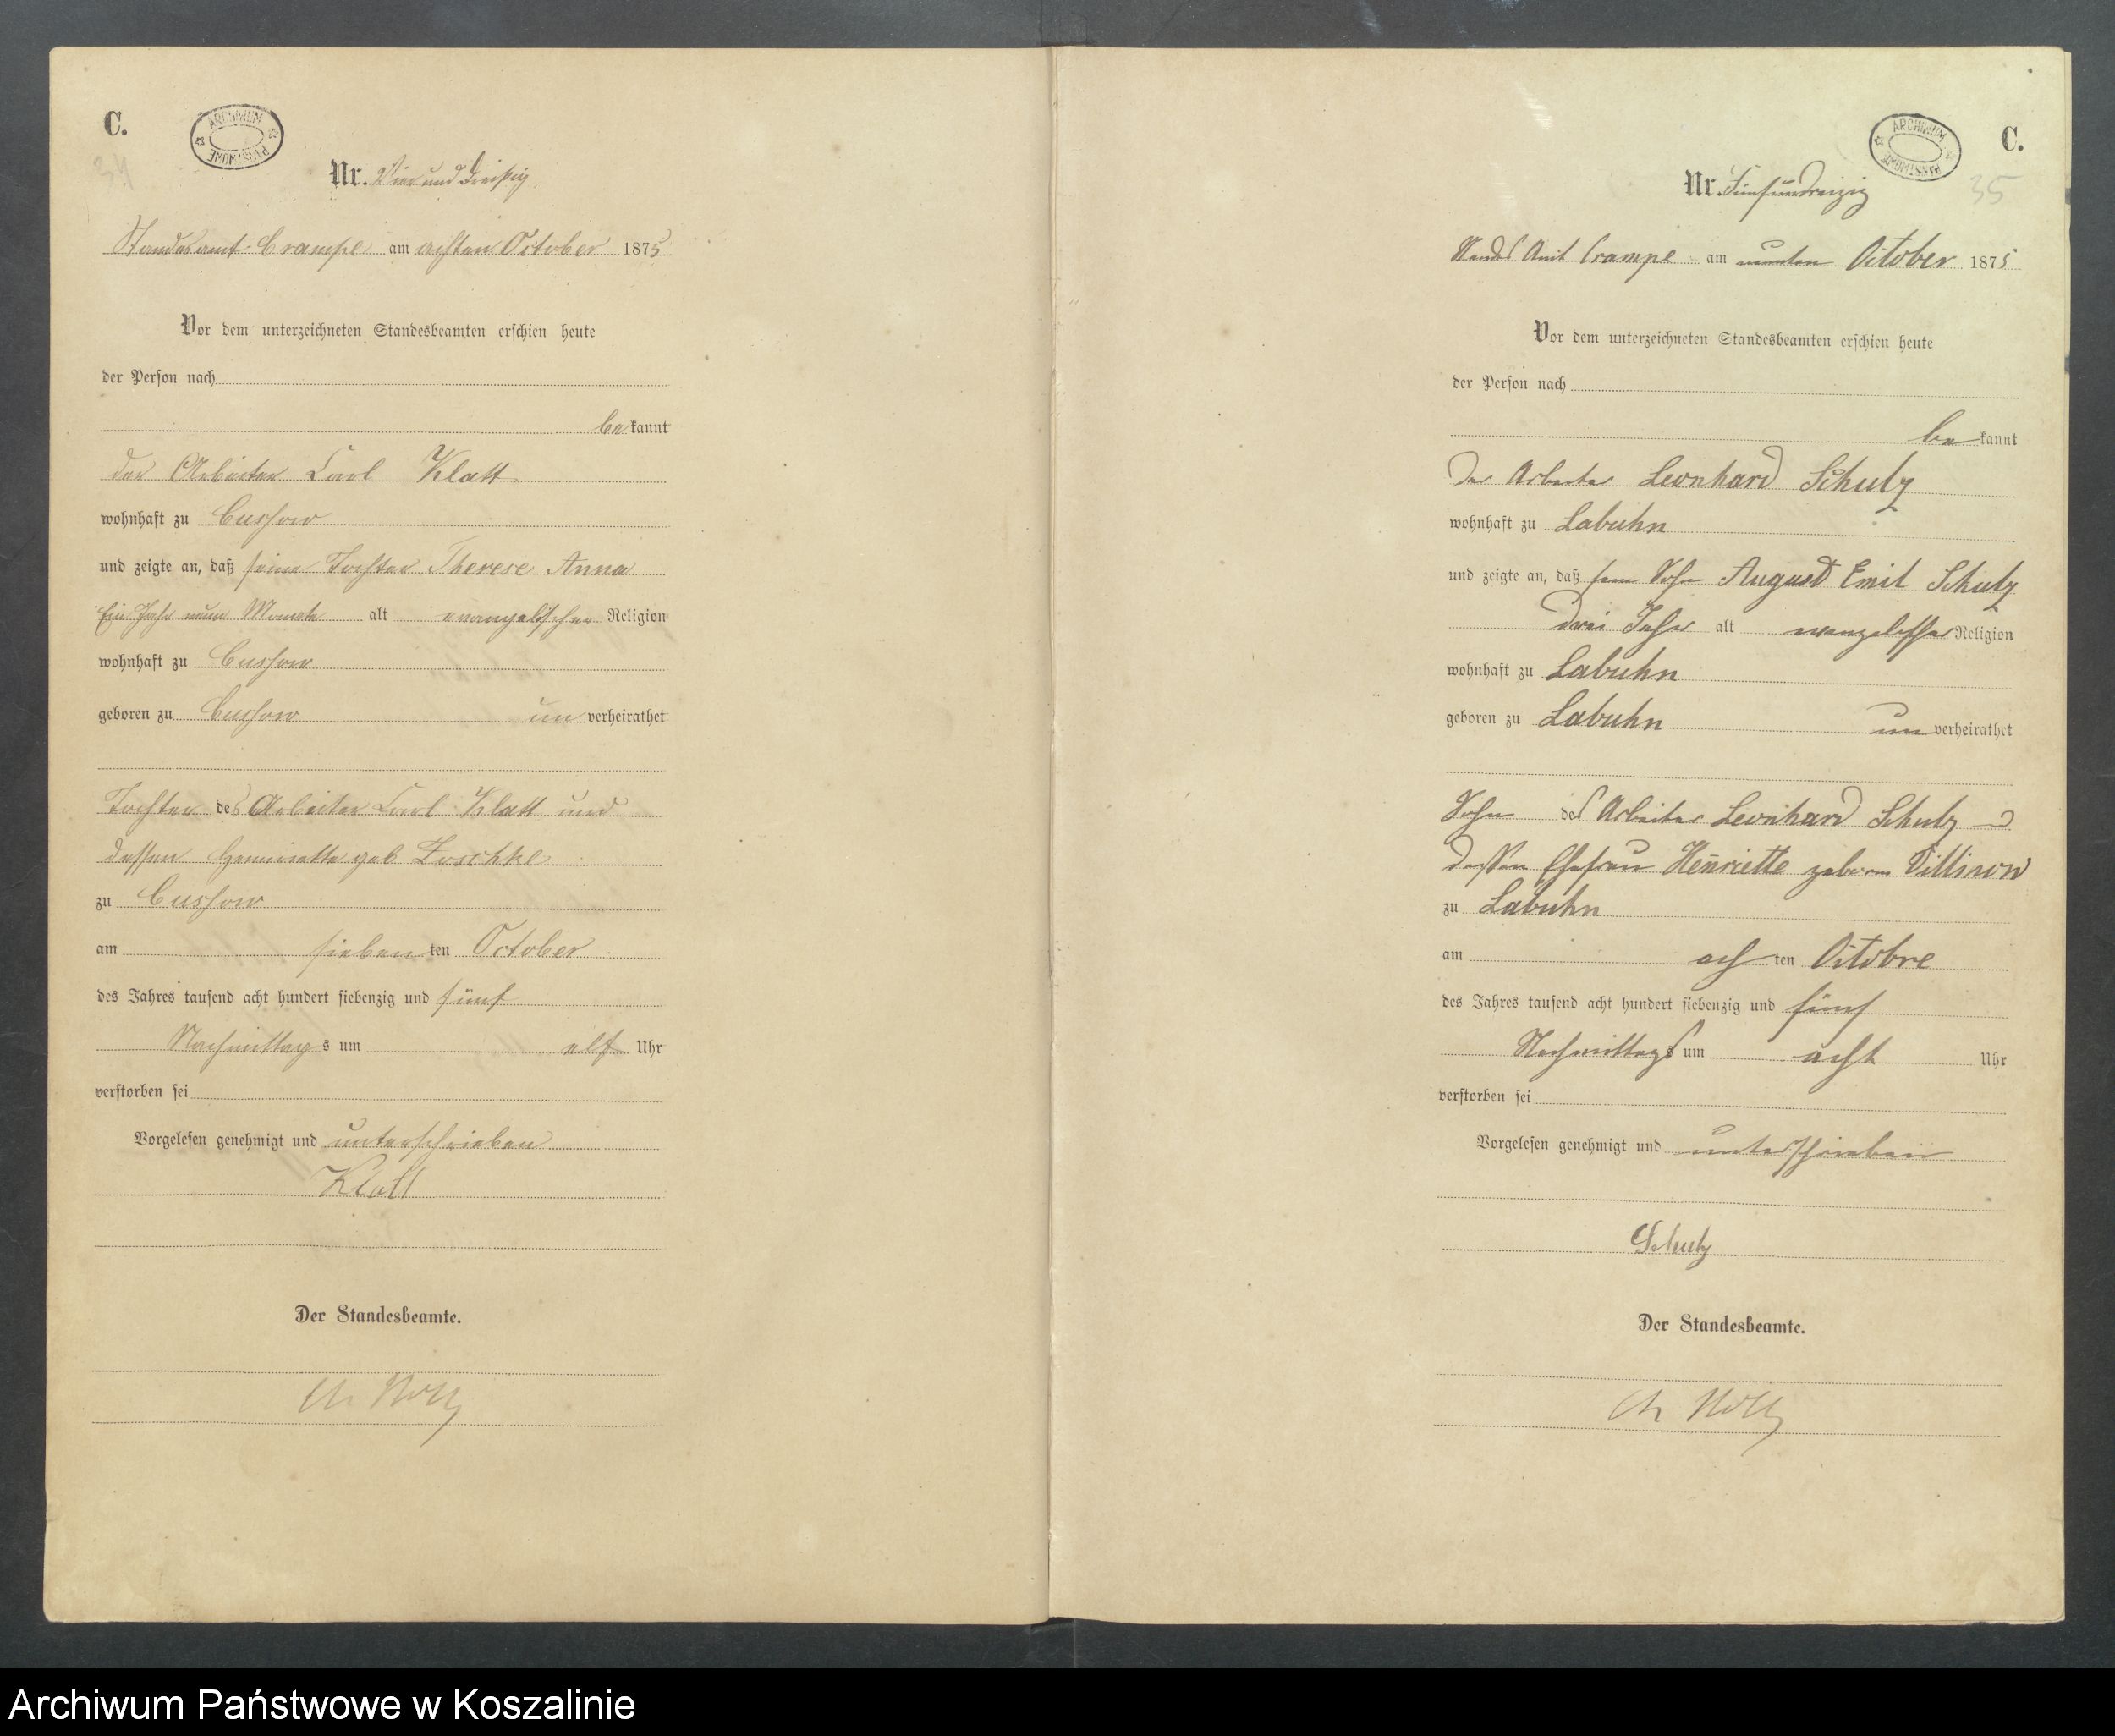 C.
ARCHIWUM PAŃSTWOWE
34
Nr. Vier und dreißig
Standesamt Crampe am achten October 1875
Vor dem unterzeichneten Standesbeamten erschien heute
der Person nach
be kannt
der Arbeiter Carl Klatt
wohnhaft zu Cussow
und zeigte an, daß seine Tochter Therese Anna
Ein Jahr neun Monate alt evangelischer Religion
wohnhaft zu Cussow
geboren zu Cussow un verheirathet
Tochter des Arbeiter Carl Klatt und
dessen Henriette geb Zoschke
zu Cussow
am sieben ten October
des Jahres tausend acht hundert siebenzig und fünf
Nachmittags um elf Uhr
verstorben sei
Vorgelesen genehmigt und unterschrieben
Klatt
Der Standesbeamte.
C.
ARCHIWUM PAŃSTWOWE
35
Nr. Fünfundreizig
Standes Amt Crampe am neunten October 1875
Vor dem unterzeichneten Standesbeamten erschien heute
der Person nach
be kannt
Der Arbeiter Leonhard Schulz
wohnhaft zu Labuhn
und zeigte an, daß sein Sohn August Emil Schulz
drei Jahr alt evangelischer Religion
wohnhaft zu Labuhn
geboren zu Labuhn un verheirathet
Sohn des Arbeiter Leonhard Schulz u
dessen Ehefrau Henriette geboren
zu Labuhn
am ach ten Octobre
des Jahres tausend acht hundert siebenzig und fünf
Nachmittags um acht Uhr
verstorben sei
Vorgelesen genehmigt und unterschrieben
Schulz
Der Standesbeamte.
Archiwum Państwowe w Koszalinie